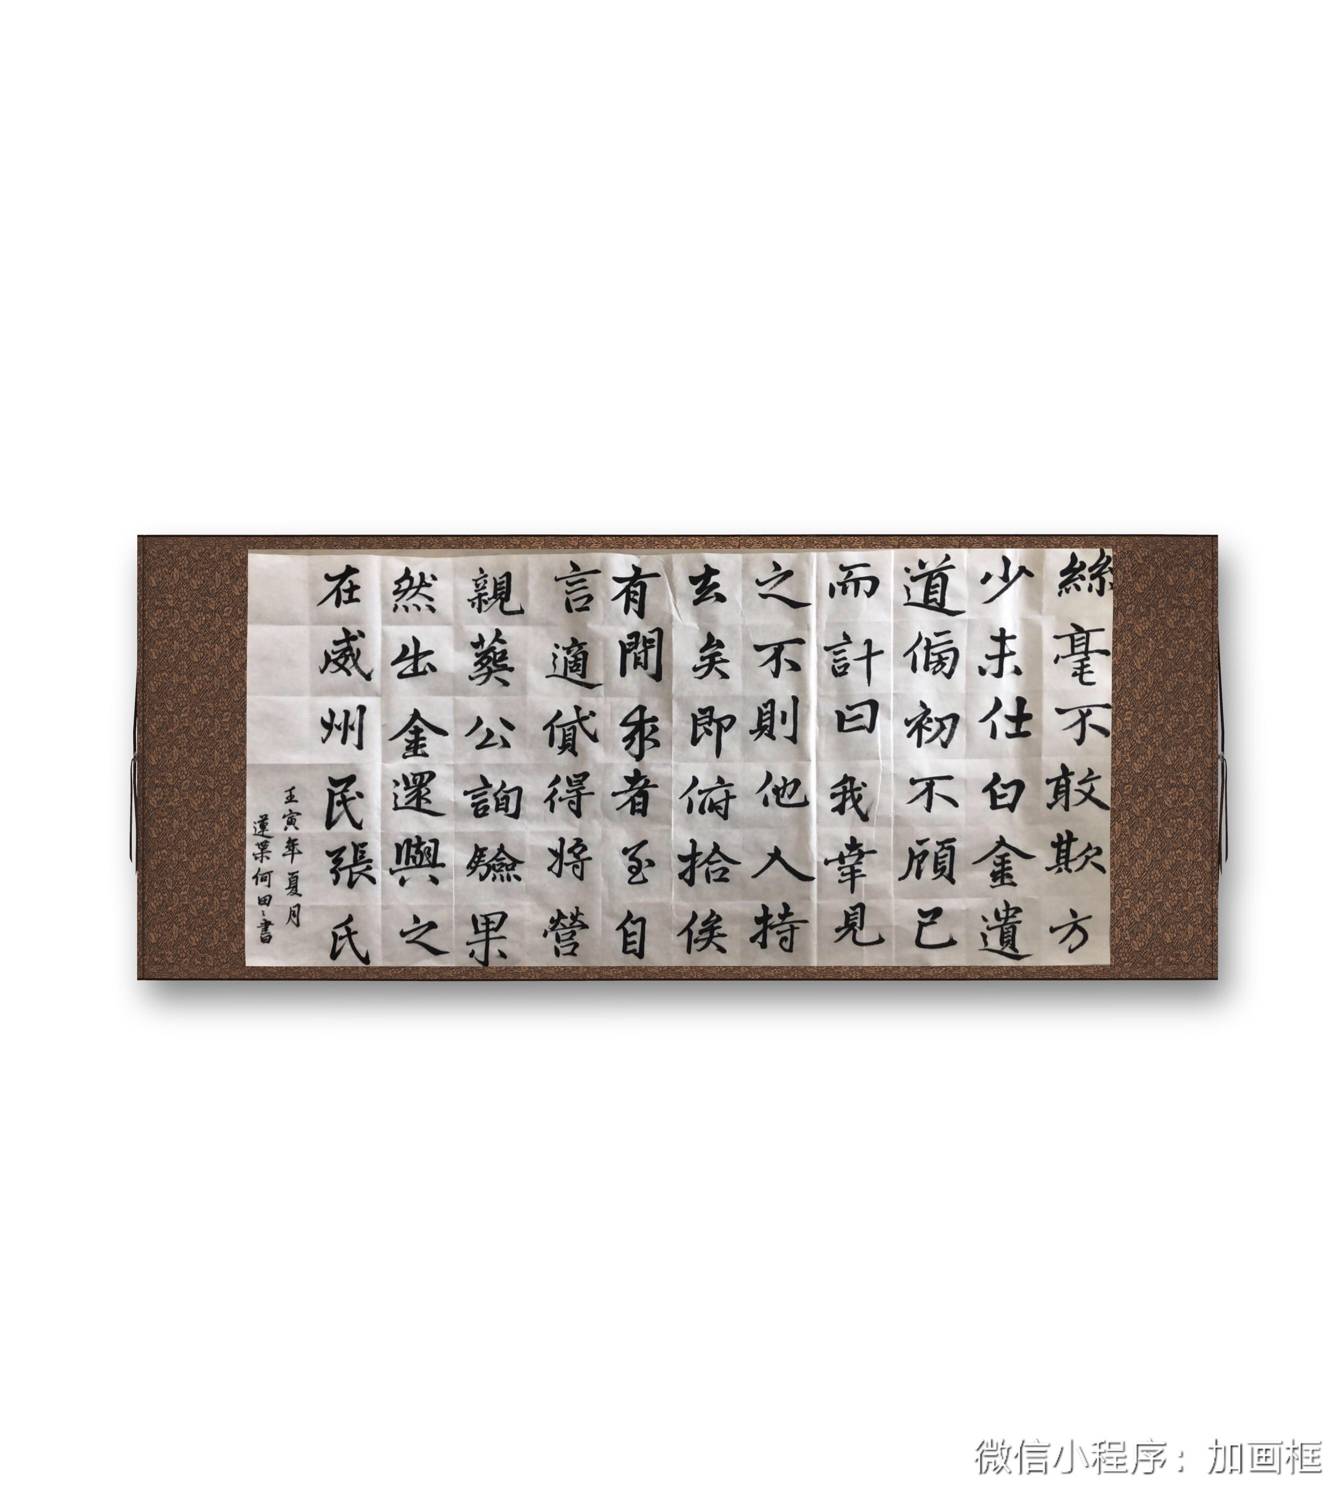 絲毫不敢欺方
少未仕白金遺
道傍初不顧已
而計曰我幸見
之不則他人持
去矣即俯拾俟
有間求者至自
言適貸得將營
親葬公詢驗果
然出金還與之
在威州民張氏
壬寅年夏月
蓮葉何田〻書
微信小程序：加画框